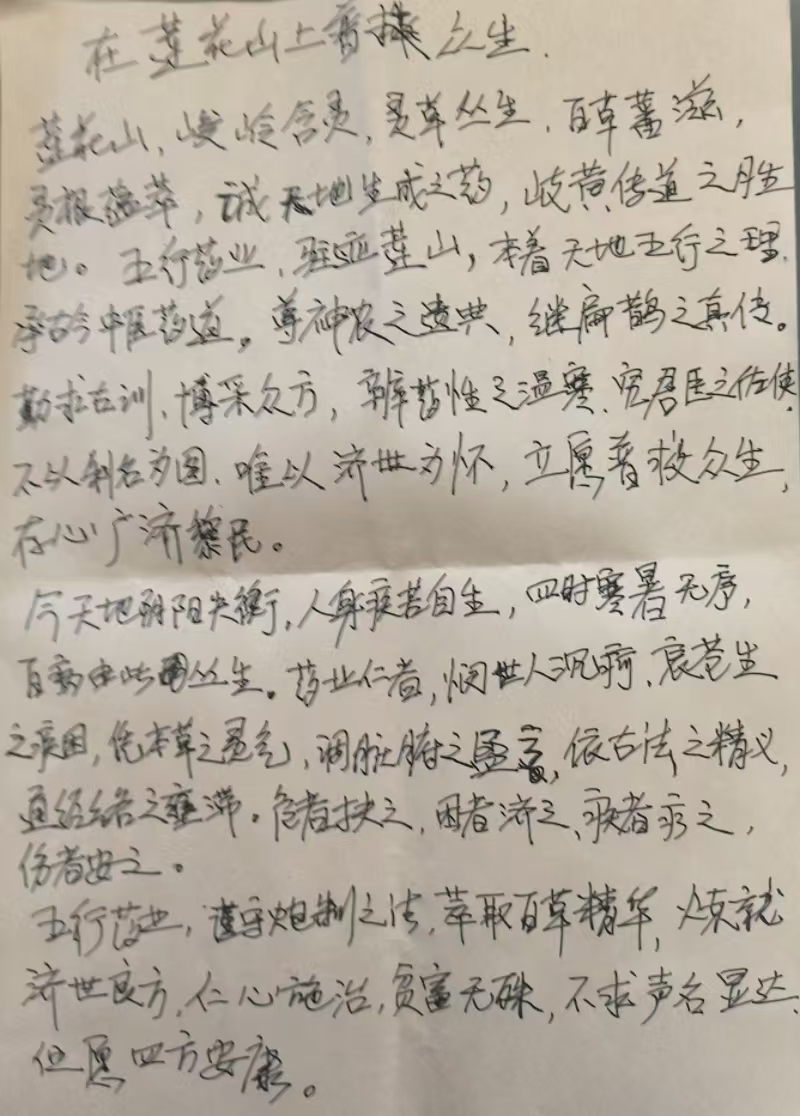 在莲花山上普救众生.
莲花山,峻岭含灵,灵草丛生,百草蕃滋,
灵根蕴萃,诚天地生成之药,岐黄传道之胜
地。五行药业,驻莲山,本着天地五行之理,
承古今中医药道。尊神农之遗典,继扁鹊之真传。
勤求古训、博采众方,辨药性之温寒、究君臣之佐使,
不以利名为图、唯以济世为怀,立愿普救众生,
存心广济黎民。
今天地阴阳失衡,人身疾苦自生,四时寒暑无序,
百病由此丛生。药业仁者,悯世人沉疴、哀苍生
之疾困,凭本草之灵气,调脏腑之盈,依古法之精义,
通经络之壅滞。危者扶之,困者济之、疾者疗之,
伤者安之。
五行药业,谨守炮制之法,萃取百草精华,炼就
济世良方,仁心施治,贫富无殊,不求声名显达、
但愿四方安康。